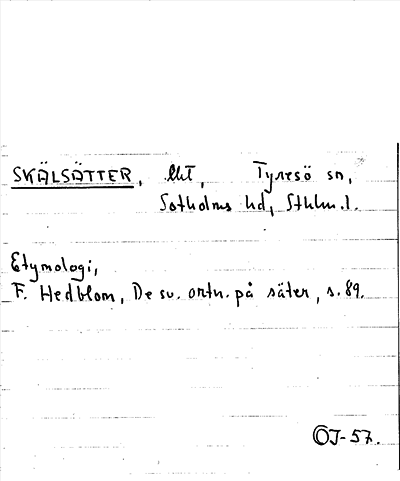 SKÄLSÄTTER, Tyresö sn,
Sotholms hd, Sthlm.l.
Etymologi,
F. Hedblom, De sv. ortn. på säter, s. 89.
OJ-57.